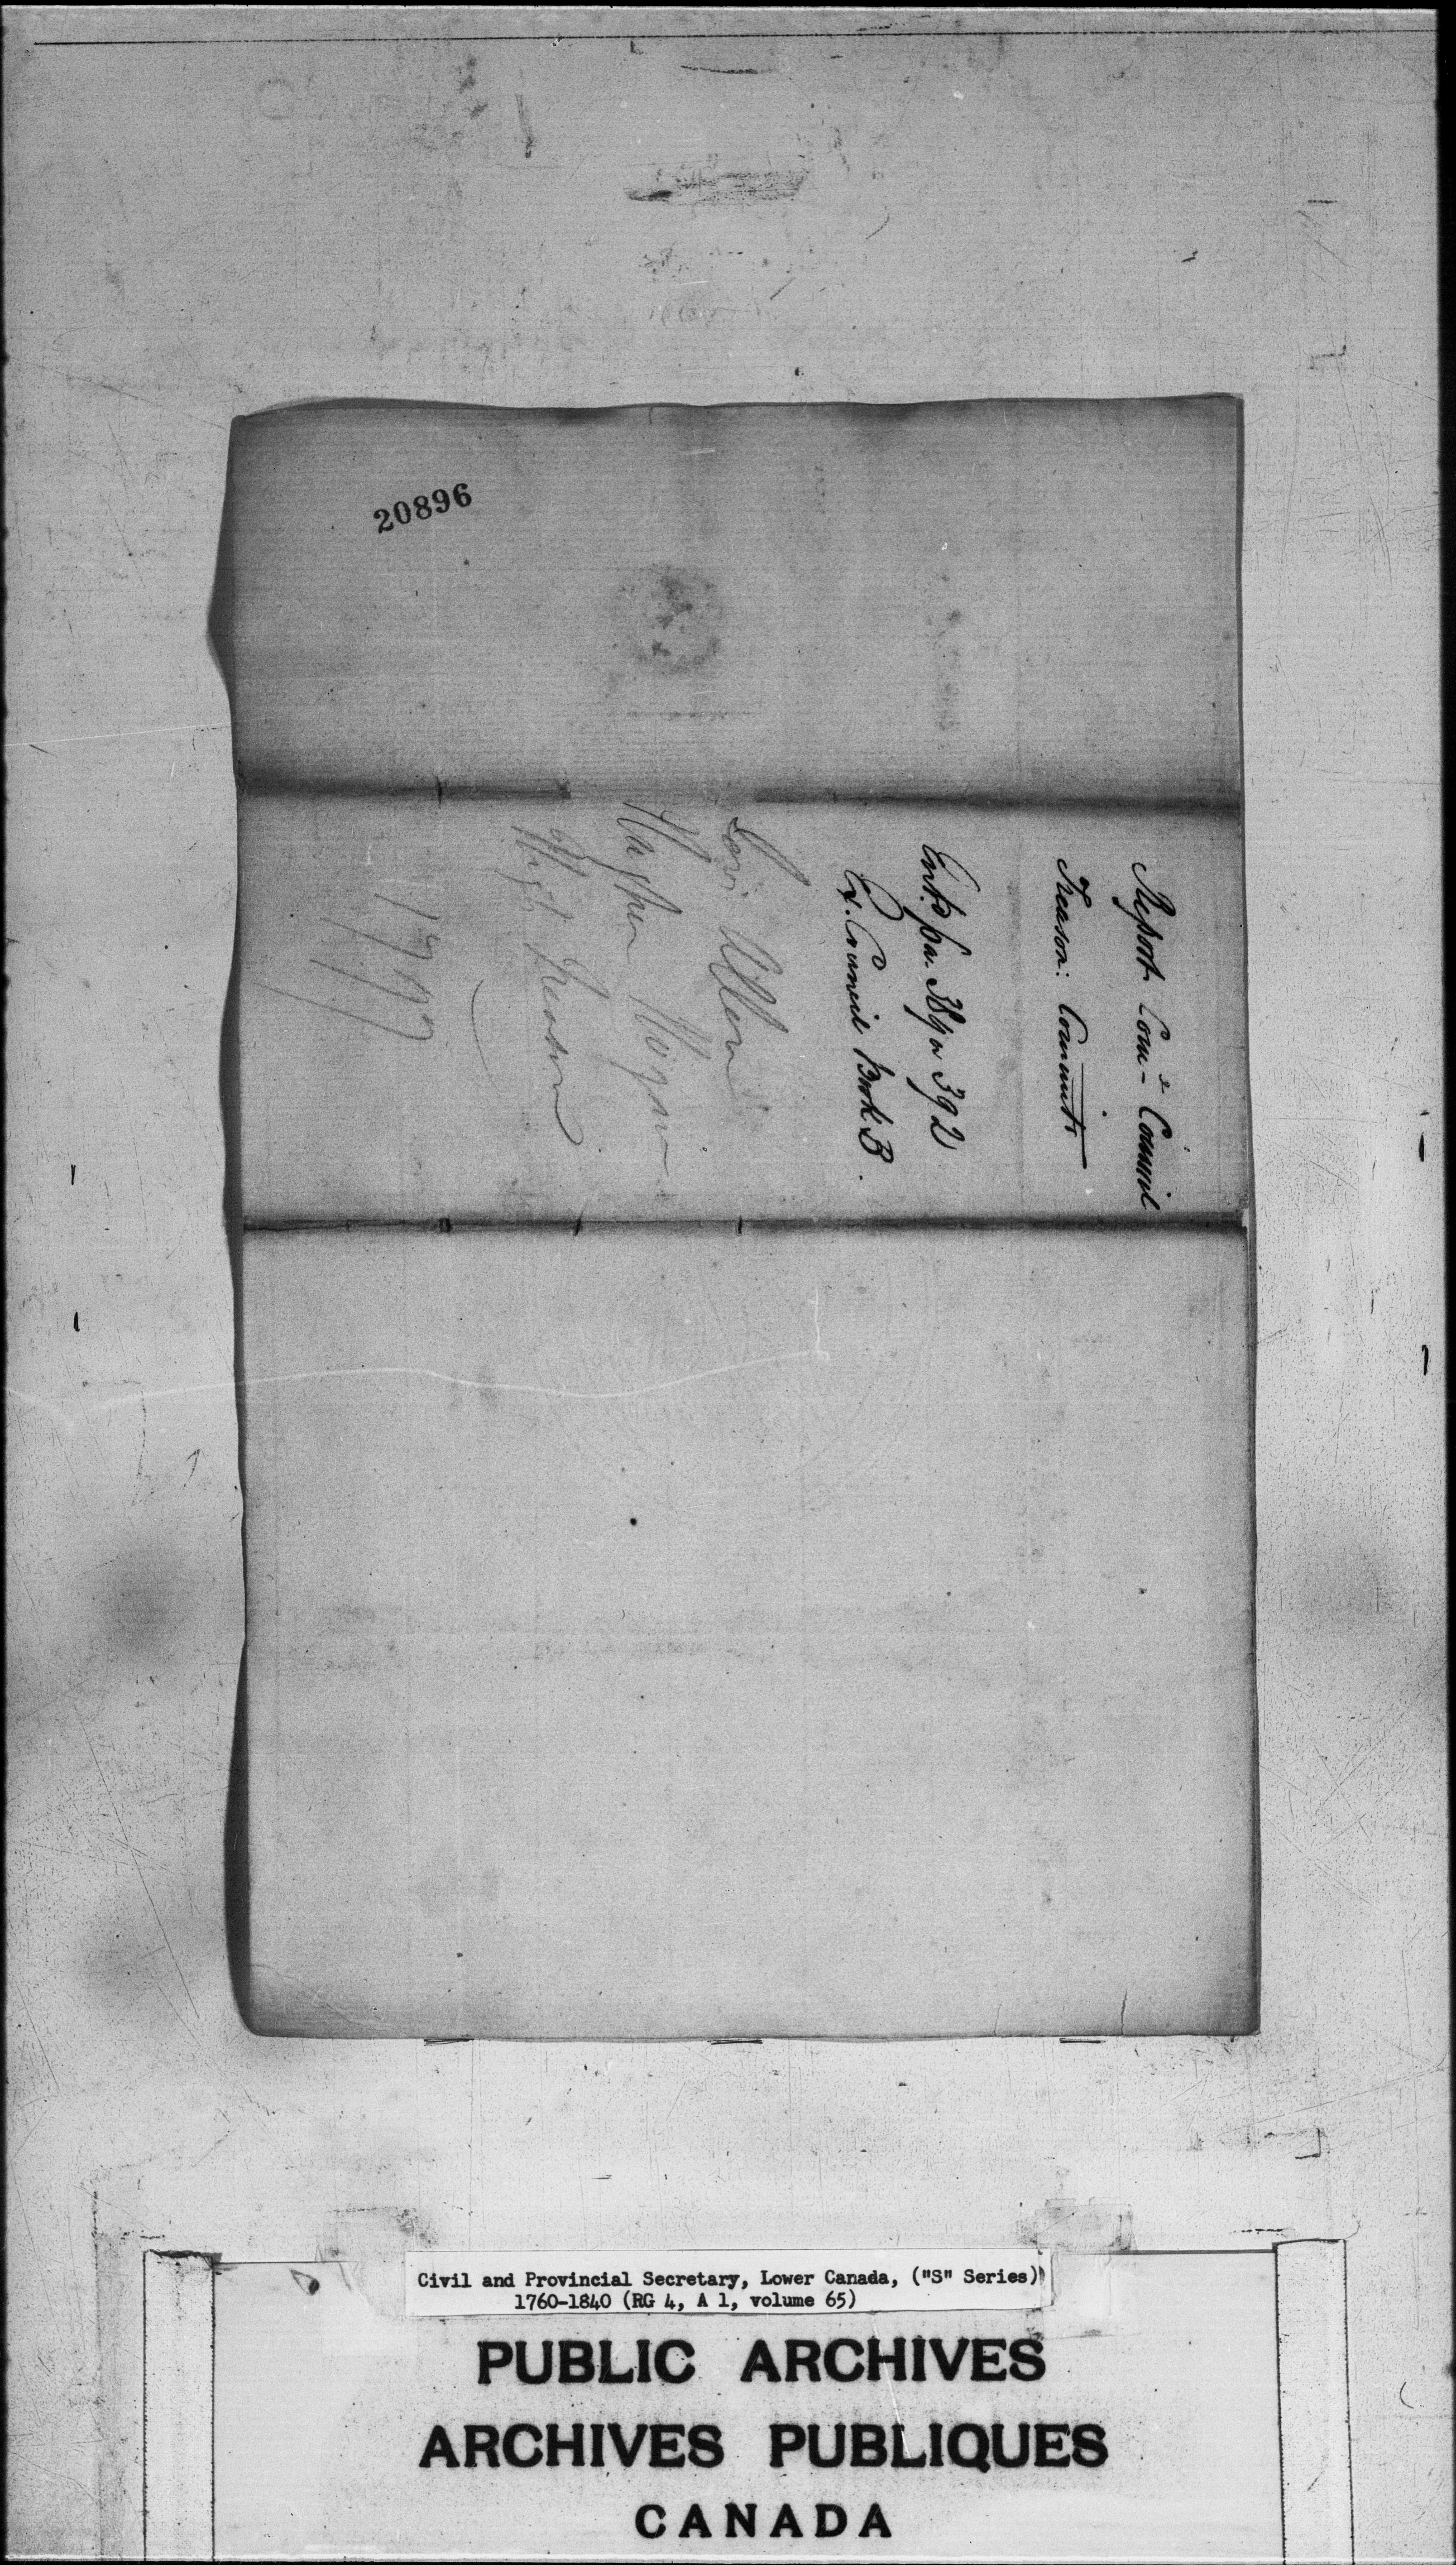 20896
Report Com^e Council
Treason: Committ
Ent^d pa. 389 a 392
Ex. Council Book B.
Levi Allen
Hogan
High Treason
1797
Civil and Provincial Secretary, Lower Canada, ("S" Series)
1760-1840 (RG 4, A 1, volume 65)
PUBLIC ARCHIVES
ARCHIVES PUBLIQUES
CANADA